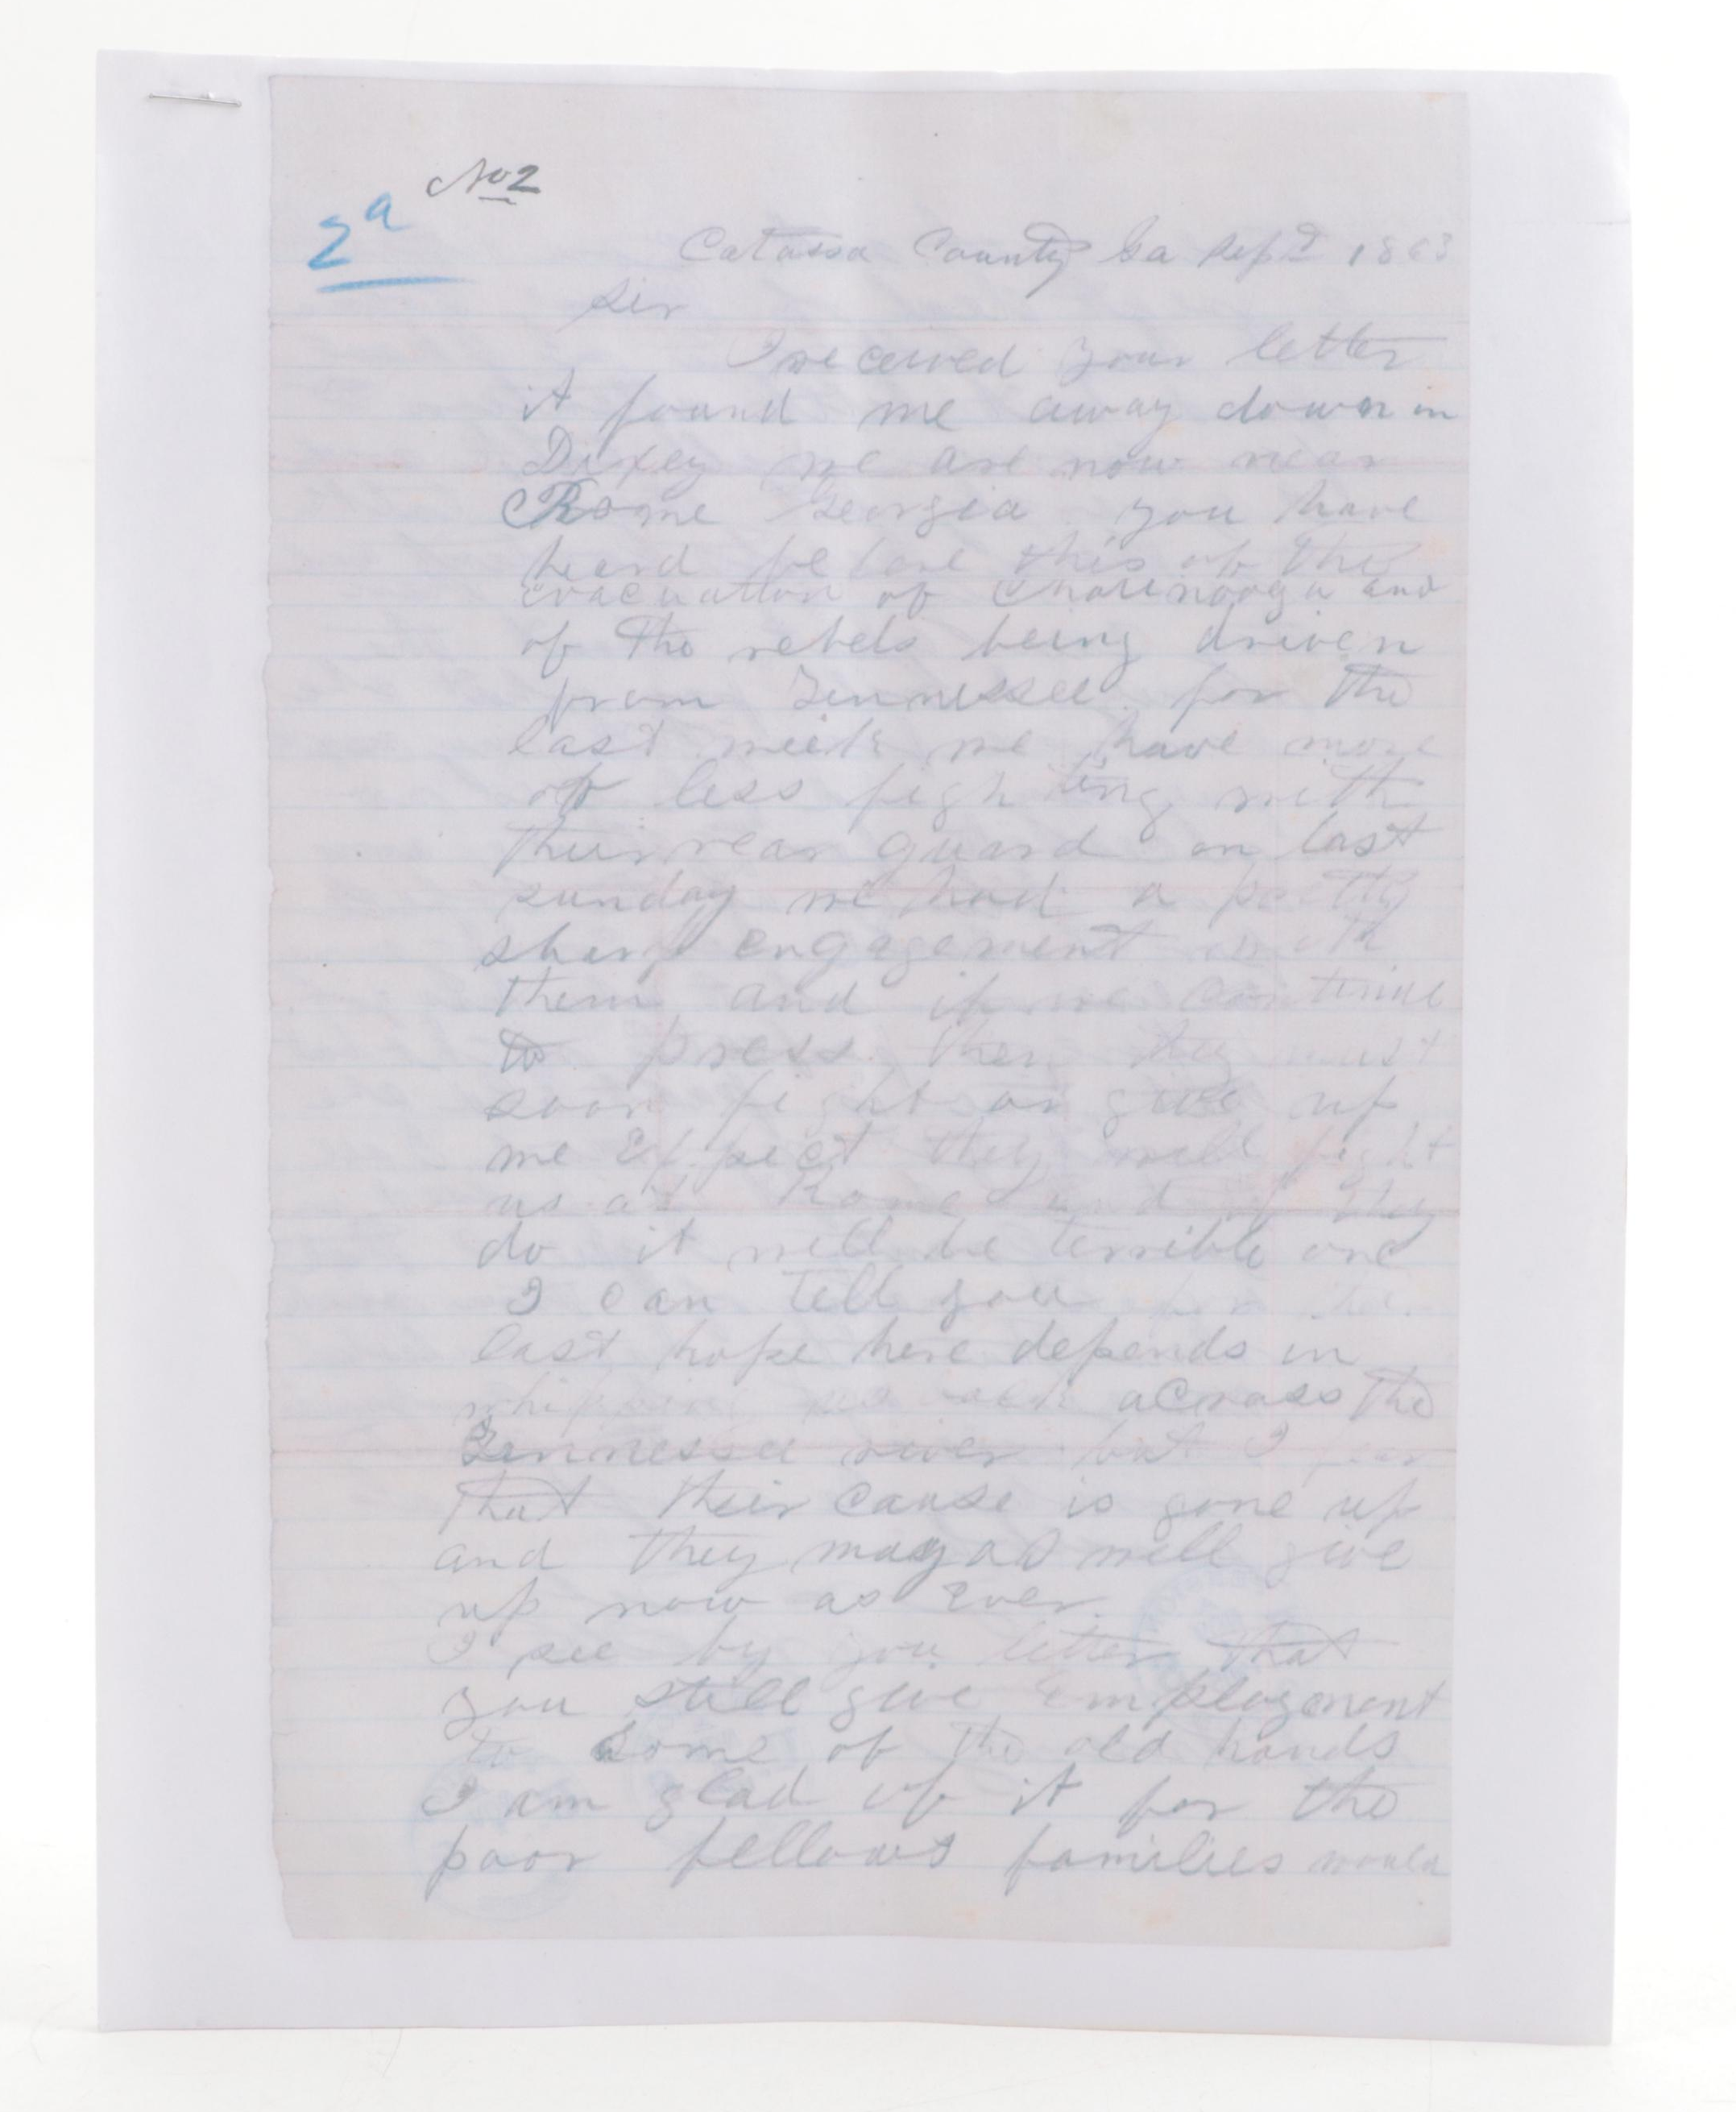 No 2
2a
Catossa County Ga Sept 1863
Sir
I received your letter
it found me away down in
Dixey we are now near
Rome Georgia you have
heard before this of the
evacuation of Chatenooga and
of the rebels being driven
from Tennessee for the
last week we have more
or less fighting with
their rear guard on last
sunday we had a pretty
sharp engagement with
them and if we continue
to press them they must
soon fight or give up
we Expect they will fight
us at Rome and if they
do it will be terrible one
I can tell you
last hope here depends in
whipping us back across the
Tennessee river but I fear
that their cause is gone up
and they may as well give
up now as Ever.
I see by you letter that
you still give Employment
to some of the old hands
I am glad of it for the
poor fellows families would